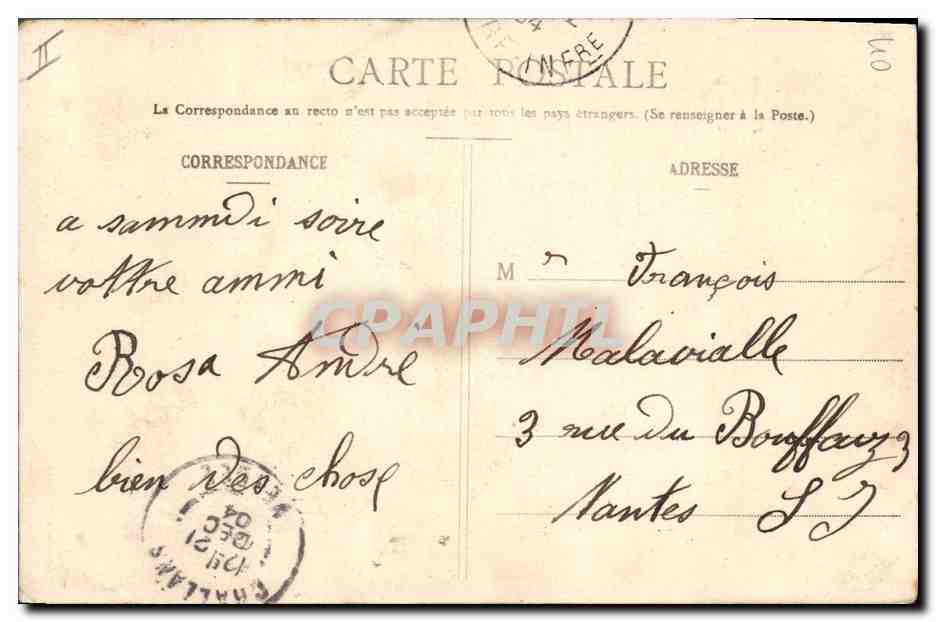 II
40
04
INFRE
CARTE POSTALE
La Correspondance au recto n'est pas acceptée par tous les pays étrangers. (Se renseigner à la Poste.)
CORRESPONDANCE
a sammdi soire
vottre ammi
Rosa André
bien des chose
CHALLANS
21
DEC
04
VENDEE
ADRESSE
M r François
Malavialle
3 rue du Bouffay 3
Nantes L I
CPAPHIL